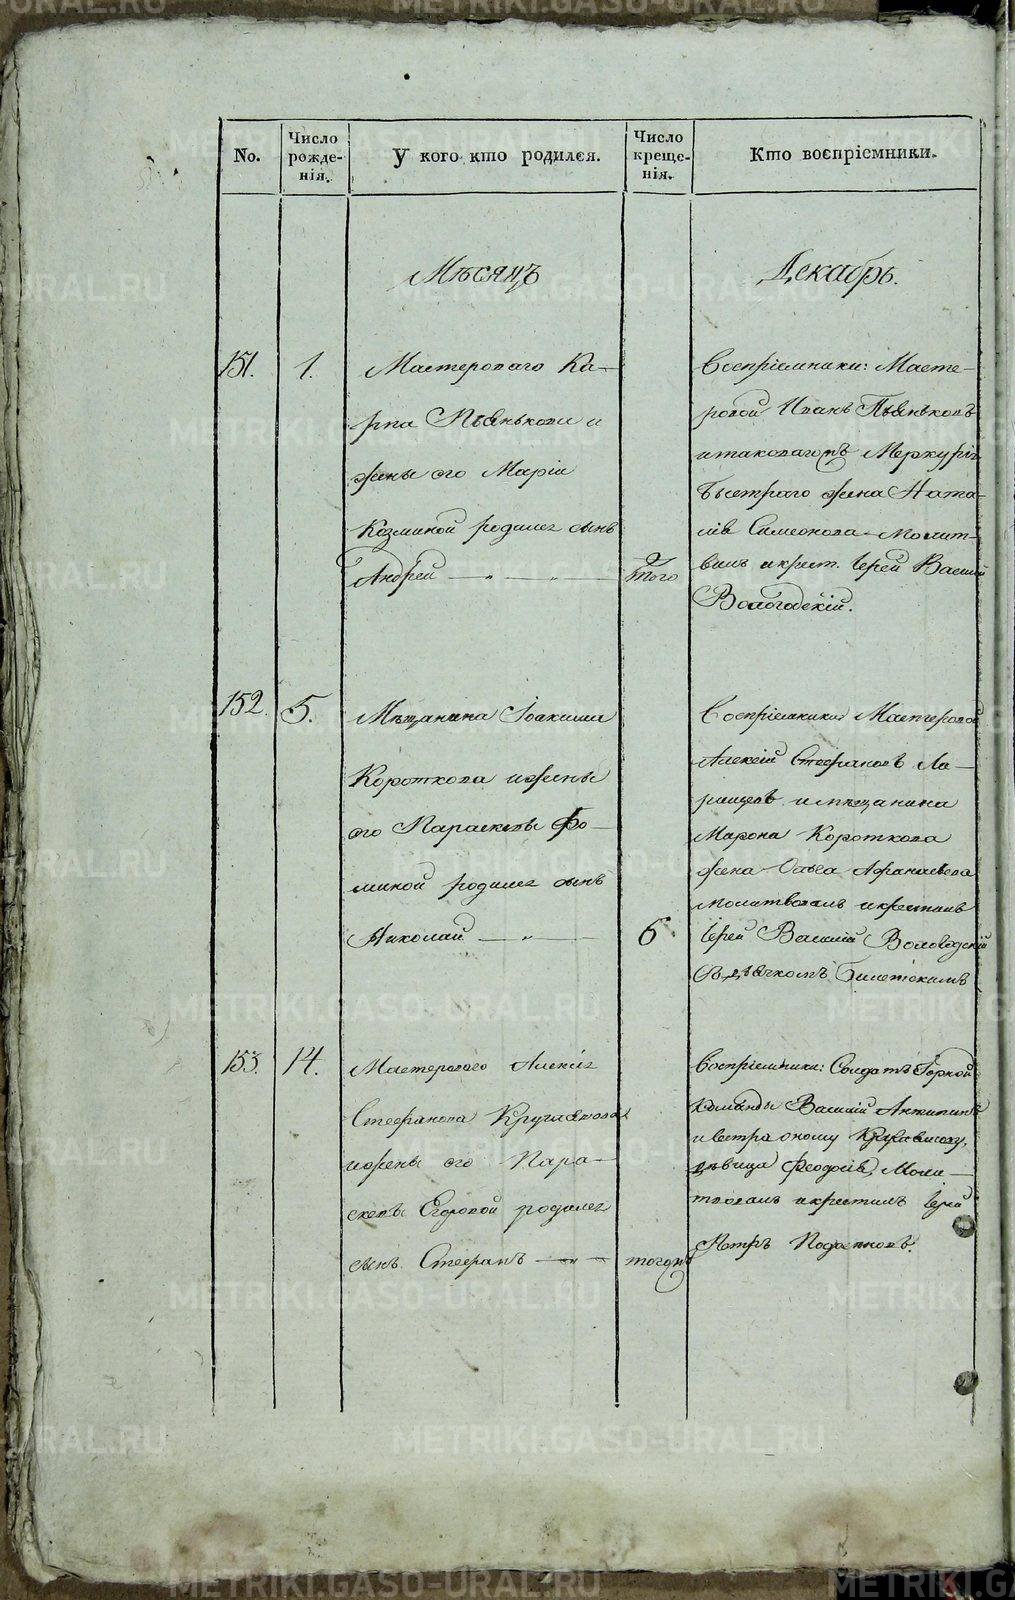 No.
Число рожде-
нія.
У кого кто родился.
Число креще-
нія.
Кто воспріемники.
Мѣсяцъ
Декабрь.
151.
1.
Мастероваго Ка-
рпа Пьянькова и
жены его Маріи
Козминой родился сынъ
Андрей
того
Воспріемники: Масте-
ровой Иванъ Пьяньковъ
и таковагожъ Меркурія
Быстраго жена Ната-
лія Симеонова Молит-
вилъ и крест. Іерей Василій
Вологодскій.
152.
5.
Мѣщанина Іоакима
Короткова и жены
его Параскевы Фо-
миной родился сынъ
Николай
6
Воспріемники Мастеровой
Алексій Стефановъ Ла-
и мѣщанина
Мирона Короткова
жена Ольга Афанасьева
Молитвовалъ и крестилъ
Іерей Василій Вологодскій
съ дьячкомъ
153.
14.
Мастероваго Алексія
Стефанова
и жены его Пара-
скевы Егоровой родился
сынъ Стефанъ
тогожъ
Воспріемники: Солдатъ Горной
команды Василій Антипинъ
и сестра оному
дѣвица Феодосія, Моли-
твовалъ и крестилъ Іерей
Петръ
METRIKI.GASO-URAL.RU